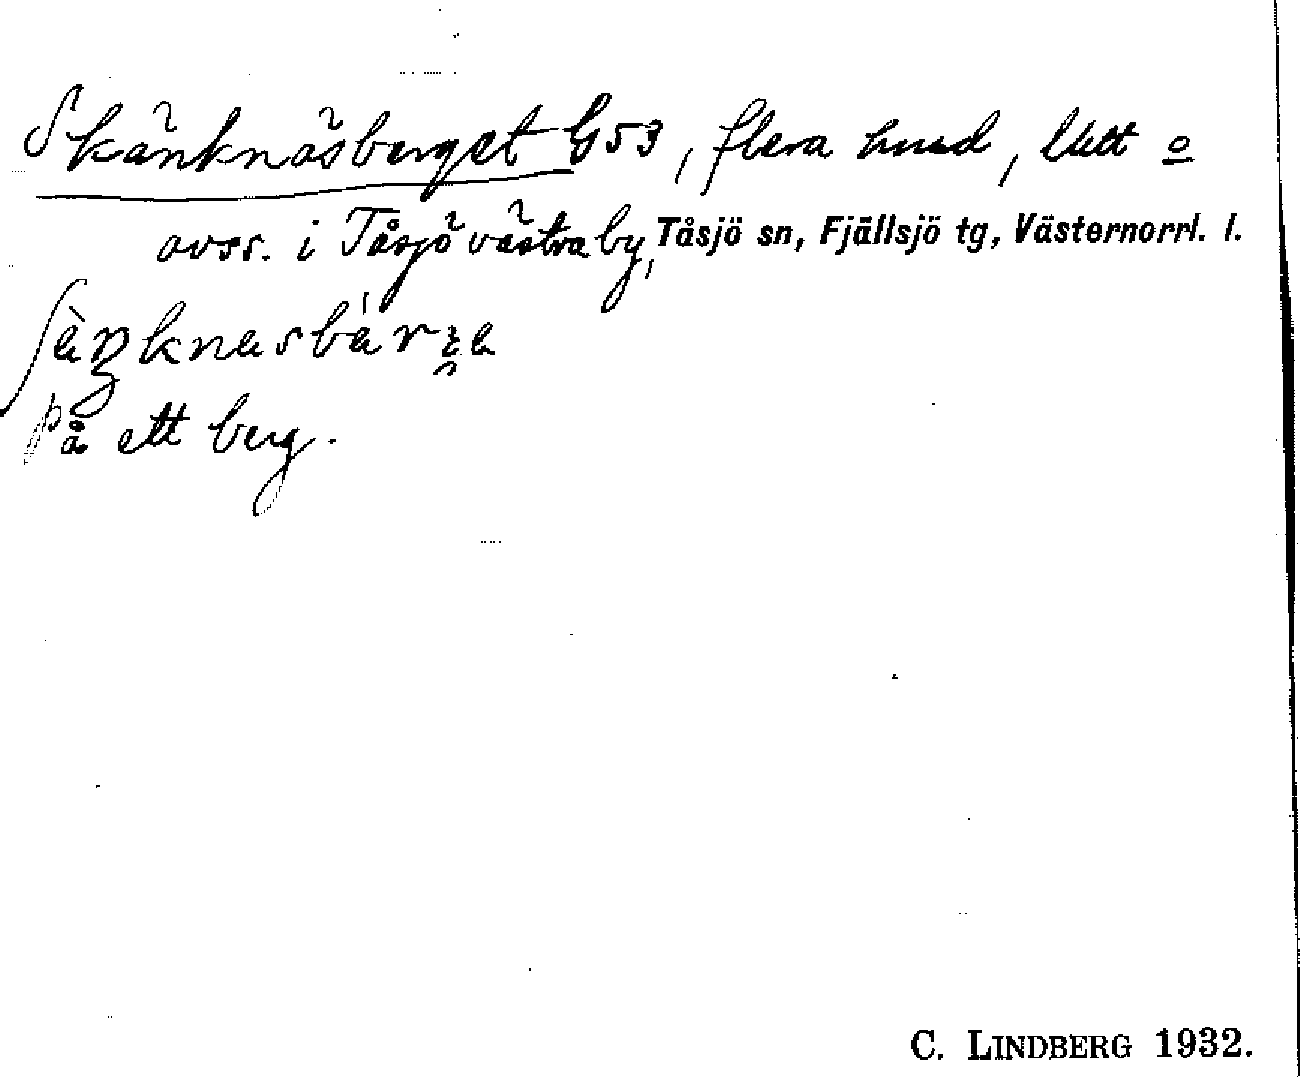 Skänknäsberget G53, flera hmd, litt o
avss. i Tåsjö västra by, Tåsjö sn, Fjällsjö tg, Västernorrl. l.
på ett berg.
C. LINDBERG 1932.